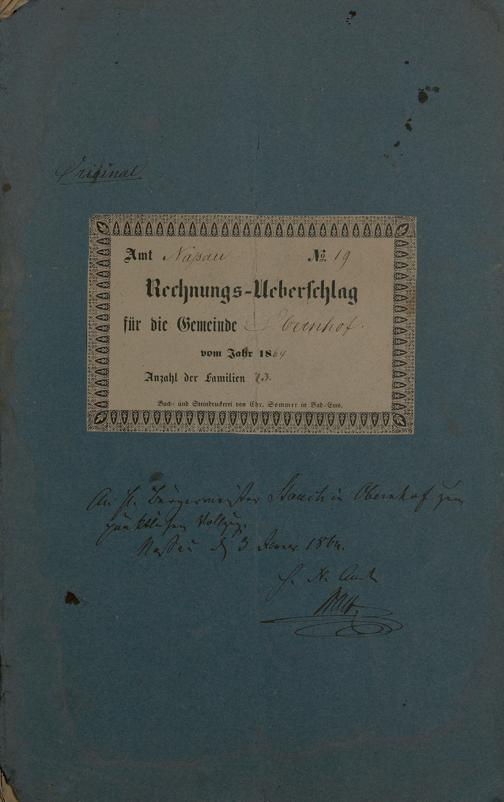 Original
Amt Nassau № 19
Rechnungs-Ueberschlag
für die Gemeinde Obernhof.
vom Jahr 1864
Anzahl der Familien 73.
Buch- und Steindruckerei von Chr. Sommer in Bad-Ems.
An H. Bürgermeister in Obernhof zum
pünktlichen Vollzug.
Nassau d 3 Januar 1864.
H. N. Amt